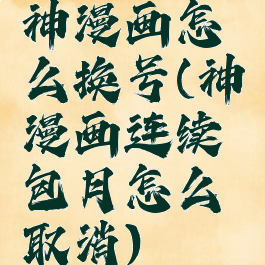 神漫画怎
么换号(神
漫画连续
包月怎么
取消)